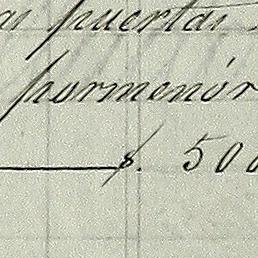 puertas
pormenór
$. 500